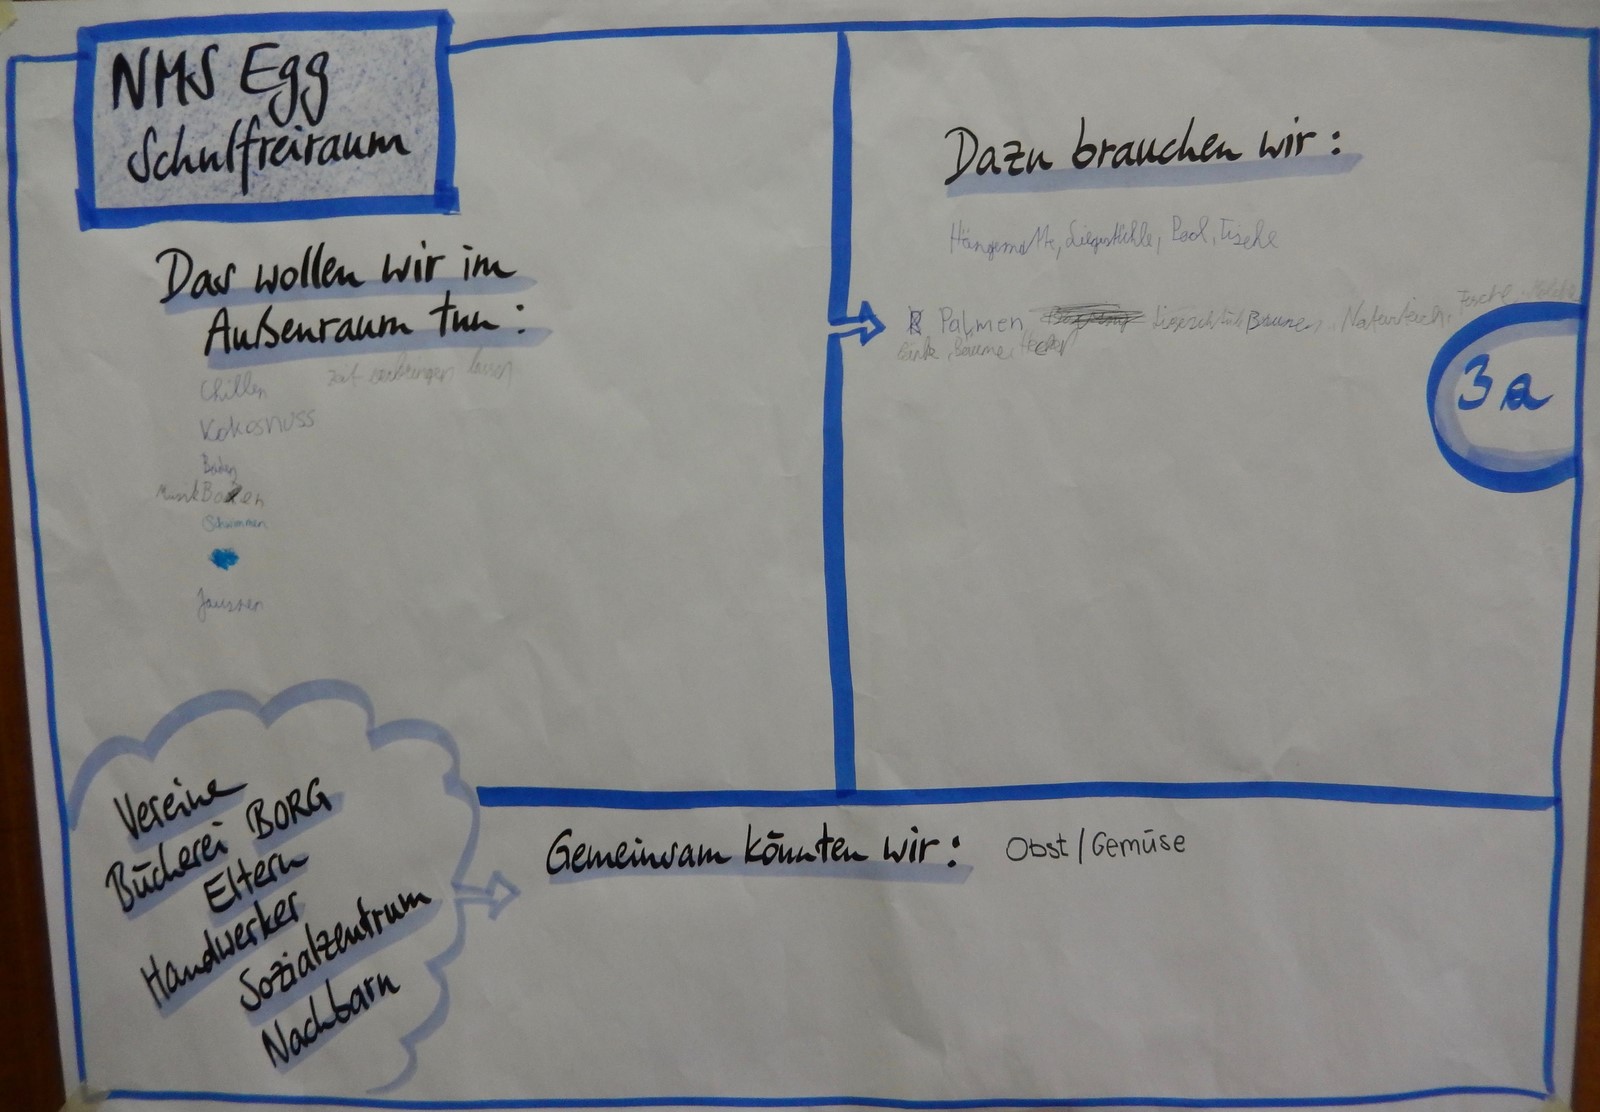 NMS Egg
Schulfreiraum
Das wollen wir im
Außenraum tun:
Chillen
Kokosnuss
Baden
Musik Boxen
Schwimmen
Jaussnen
Dazu brauchen wir:
Hängematte, Liegestühle, Pool, Tische
Palmen Naturteich, Fische,
Bäume,
3a
Vereine
Bücherei BORG
Eltern
Handwerker
Sozialzentrum
Nachbarn
Gemeinsam könnten wir: Obst/Gemüse